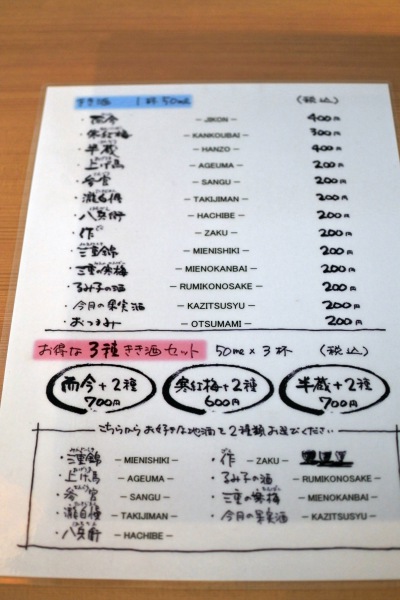 きき酒 1杯50ml (税込)
・而今 — JIKON — 400円
・寒紅梅 — KANKOUBAI — 300円
・半蔵 — HANZO — 400円
・上げ馬 — AGEUMA — 200円
・参宮 — SANGU — 200円
・瀧自慢 — TAKIJIMAN — 200円
・八兵衛 — HACHIBE — 200円
・作 — ZAKU — 200円
・三重錦 — MIENISHIKI — 200円
・三重の寒梅 — MIENOKANBAI — 200円
・るみ子の酒 — RUMIKONOSAKE — 200円
・今月の果実酒 — KAZITSUSYU — 200円
おつまみ — OTSUMAMI — 200円
お得な3種きき酒セット 50ml×3杯 (税込)
而今+2種 700円
寒紅梅+2種 600円
半蔵+2種 700円
こちらからお好きな地酒を2種類お選びください
・三重錦 — MIENISHIKI — ・作 — ZAKU —
・上げ馬 — AGEUMA — ・るみ子の酒 — RUMIKONOSAKE —
・参宮 — SANGU — ・三重の寒梅 — MIENOKANBAI —
・瀧自慢 — TAKIJIMAN — ・今月の果実酒 — KAZITSUSYU —
・八兵衛 — HACHIBE —